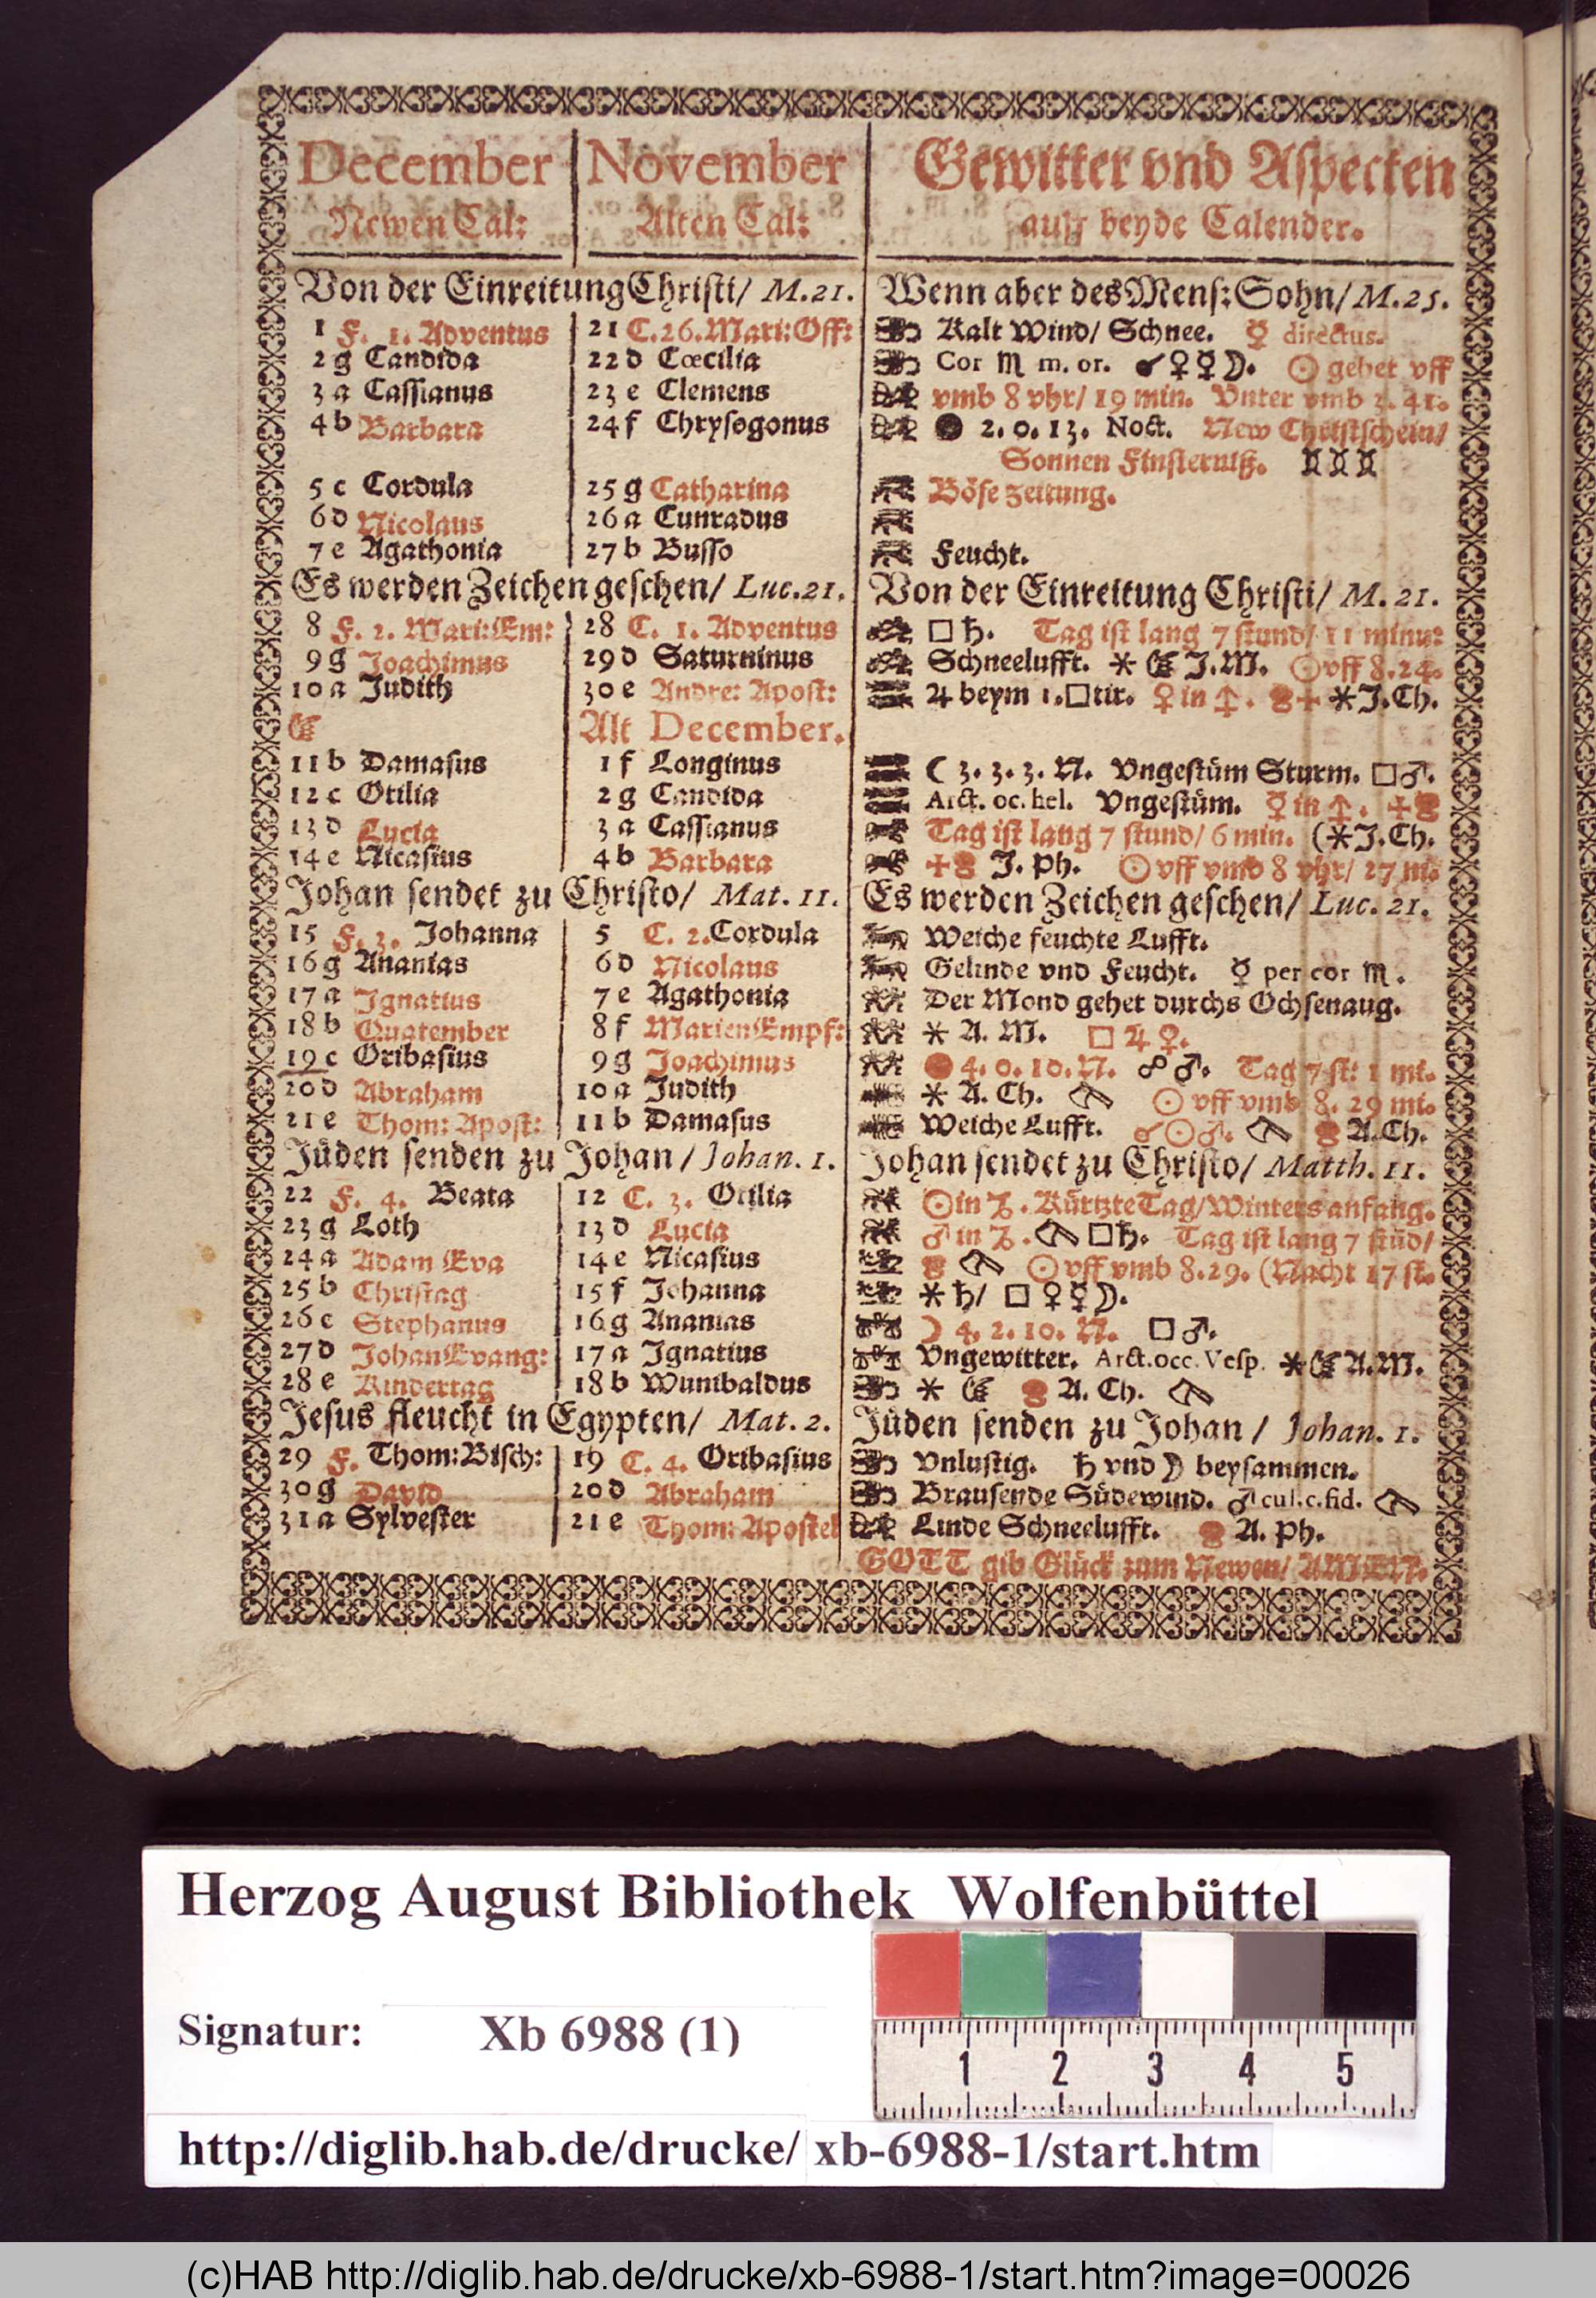 December | November | Gewitter vnd Aspecten
Newen Cal: | Alten Cal: | auß beyde Calender.
Von der Einreitung Christi/ M.21. | Wenn aber des Mens: Sohn/ M.25.
1 F. 1. Adventus | 21 C. 26. Mari: Off: | Kalt Wind/ Schnee. ☿ directus.
2 g Candida | 22 d Cœcilia | Cor ♏ m. or. ☌ ♀ ☿ ☽. ☉ gehet vff
3 a Cassianus | 23 e Clemens | vmb 8 vhr/ 19 min. Vnter vmb 3. 41.
4 b Barbara | 24 f Chrysogonus | ● 2. 0. 13. Noct. New Christschein/
Sonnen Finsterniß.
5 c Cordula | 25 g Catharina | Böse zeitung.
6 d Nicolaus | 26 a Cunradus
7 e Agathonia | 27 b Busso | Feucht.
Es werden Zeichen geschen/ Luc.21. | Von der Einreitung Christi/ M. 21.
8 F. 2. Mari: Em: | 28 C. 1. Adventus | □ ♄. Tag ist lang 7 stund/ 11 minut
9 g Joachimus | 29 d Saturninus | Schneelufft. ⚹ J. M. ☉ vff 8. 24.
10 a Judith | 30 e Andre: Apost: | ♃ beym 1. □ tir. ♀ in ♐. ⚹ J. Ch.
Alt December.
11 b Damasus | 1 f Longinus | ☾ 3. 3. 3. N. Vngestüm Sturm. □ ♂.
12 c Otilia | 2 g Candida | Arct. oc. hel. Vngestüm. ☿ in ♐.
13 d Lucia | 3 a Cassianus | Tag ist lang 7 stund/ 6 min. (⚹ J. Ch.
14 e Nicasius | 4 b Barbara | J. Ph. ☉ vff vmb 8 vhr/ 27 mi.
Johan sendet zu Christo/ Mat. 11. | Es werden Zeichen geschen/ Luc. 21.
15 F. 3. Johanna | 5 C. 2. Cordula | Weiche feuchte Lufft.
16 g Ananias | 6 d Nicolaus | Gelinde vnd Feucht. ☿ per cor ♏.
17 a Ignatius | 7 e Agathonia | Der Mond gehet durchs Ochsenaug.
18 b Quatember | 8 f Marien Empf: | ⚹ A. M. □ ♃ ♀.
19 c Oribasius | 9 g Joachimus | ● 4. 0. 10. N. ☍ ♂. Tag 7 st: 1 mi.
20 d Abraham | 10 a Judith | ⚹ A. Ch. ☉ vff vmb 8. 29 mi.
21 e Thom: Apost: | 11 b Damasus | Weiche Lufft. ☌ ☉ ♂. A. Ch.
Jüden senden zu Johan / Johan. 1. | Johan sendet zu Christo/ Matth. 11.
22 F. 4. Beata | 12 C. 3. Otilia | ☉ in ♑. Kürtzte Tag/ Winters anfang.
23 g Loth | 13 d Lucia | ♂ in ♑. □ ♄. Tag ist lang 7 stüd/
24 a Adam Eva | 14 e Nicasius | ☉ vff vmb 8. 29. (Nacht 17 st.
25 b Christag | 15 f Johanna | ⚹ ♄/ □ ♀ ☿ ☽.
26 c Stephanus | 16 g Ananias | ☽ 4. 2. 10. N. □ ♂.
27 d Johan Evang: | 17 a Ignatius | Vngewitter. Arct. occ. Vesp. ⚹ A. M.
28 e Kindertag | 18 b Wunibaldus | ⚹ A. Ch.
Jesus fleucht in Egypten/ Mat. 2. | Jüden senden zu Johan / Johan. 1.
29 F. Thom: Bisch: | 19 C. 4. Oribasius | Vnlustig. ♄ vnd ☽ beysammen.
30 g David | 20 d Abraham | Brausende Südewind. ♂ cul. c. fid.
31 a Sylvester | 21 e Thom: Apostel | Linde Schneelufft. A. Ph.
GOTT gib Glück zum Newen/ AMEN.
Herzog August Bibliothek Wolfenbüttel
Signatur: Xb 6988 (1)
1 2 3 4 5
http://diglib.hab.de/drucke/ xb-6988-1/start.htm
(c)HAB http://diglib.hab.de/drucke/xb-6988-1/start.htm?image=00026